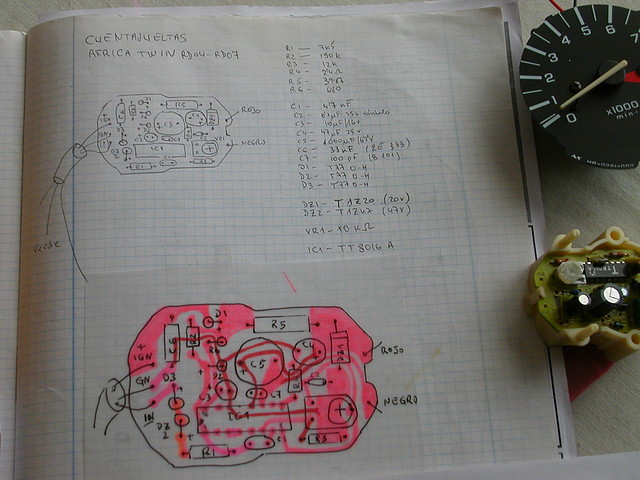 CUENTAVUELTAS
AFRICA TWIN RD04-RD07
R1 — 7K5
R2 — 150K
R3 — 12K
R4 — 24Ω
R5 — 39Ω
R6 — 680
C1 — 47 nF
C2 —
C3 — 10µF/16v
C4 — 47µF 25v
C5 — 1000µF/6V
C6 — 33nF (2E 333)
C7 — 100pF (B 101)
D1 — T77 0-H
D2 — T77 0-H
D3 — T77 0-H
DZ1 — T1Z20 (20V)
DZ2 — T1Z47 (47V)
VR1 — 10 KΩ
IC1 — TT8016 A
R5
C5
VR1
IC1
C1
ROJO
NEGRO
verde
D1
R5
C6
R2
+
IGN
R6
C5
C4
DZ1
ROJO
GN
D3
D2
C3
C7
IN
DZ
2
IC1
NEGRO
R1
C1
R3
0
1
2
3
4
5
6
7
x1000
min